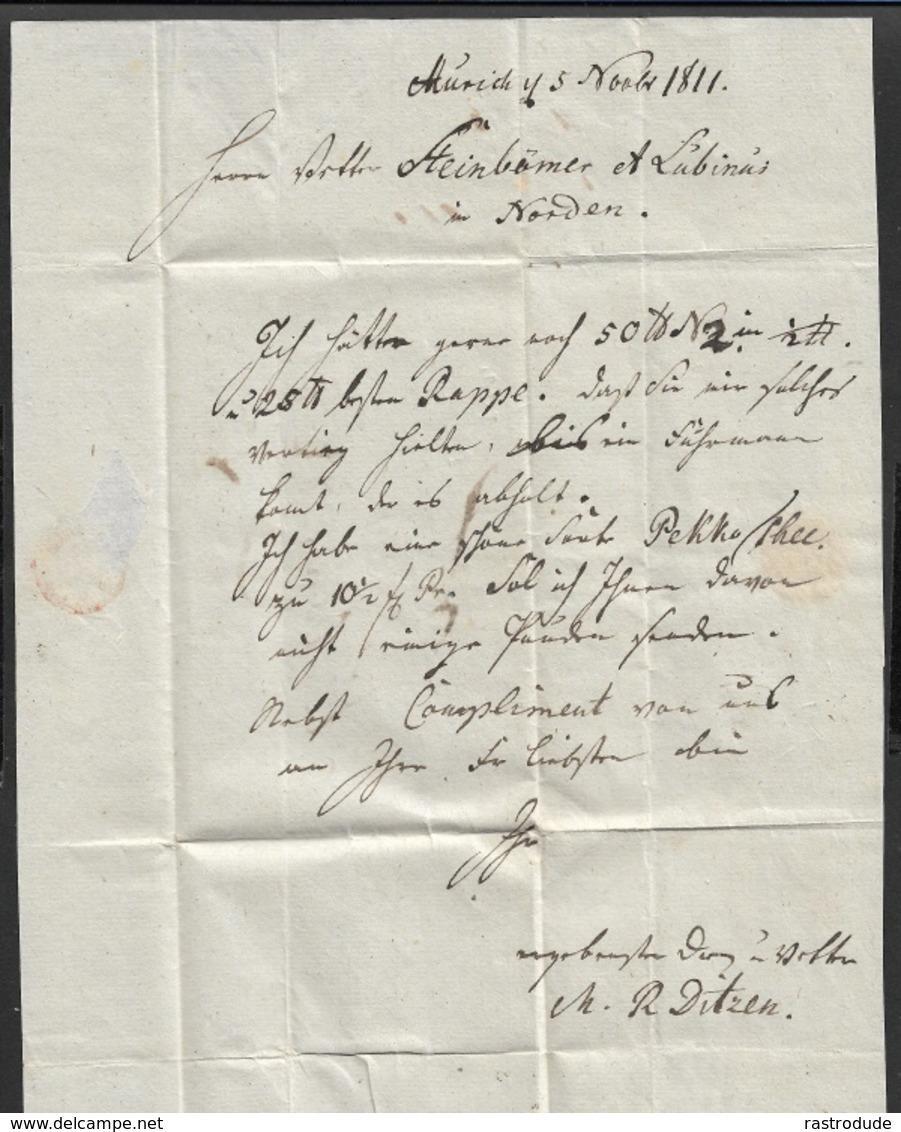 Aurich d 5 Novbr 1811.
Herrn Vetter Steinbömer & Lubinus
in Norden.
Ich hätte gerne noch 50 ℔ No 2. in ½ ℔.
u 25 ℔ besten Rappe. daß Sie mir solches
vertig hielten, bis ein Fuhrmann
komt, der es abholt.
Ich habe eine schöne Sorte Pekko Thee.
zu 10½ f Pr. Sol ich Ihnen davon
nicht einige Pfunden senden.
Nebst Compliment von uns
an Ihre Fr Liebsten bin
Ihr
ergebenster u Vetter
M. R Ditzen.
delcampe.net
rastrodude